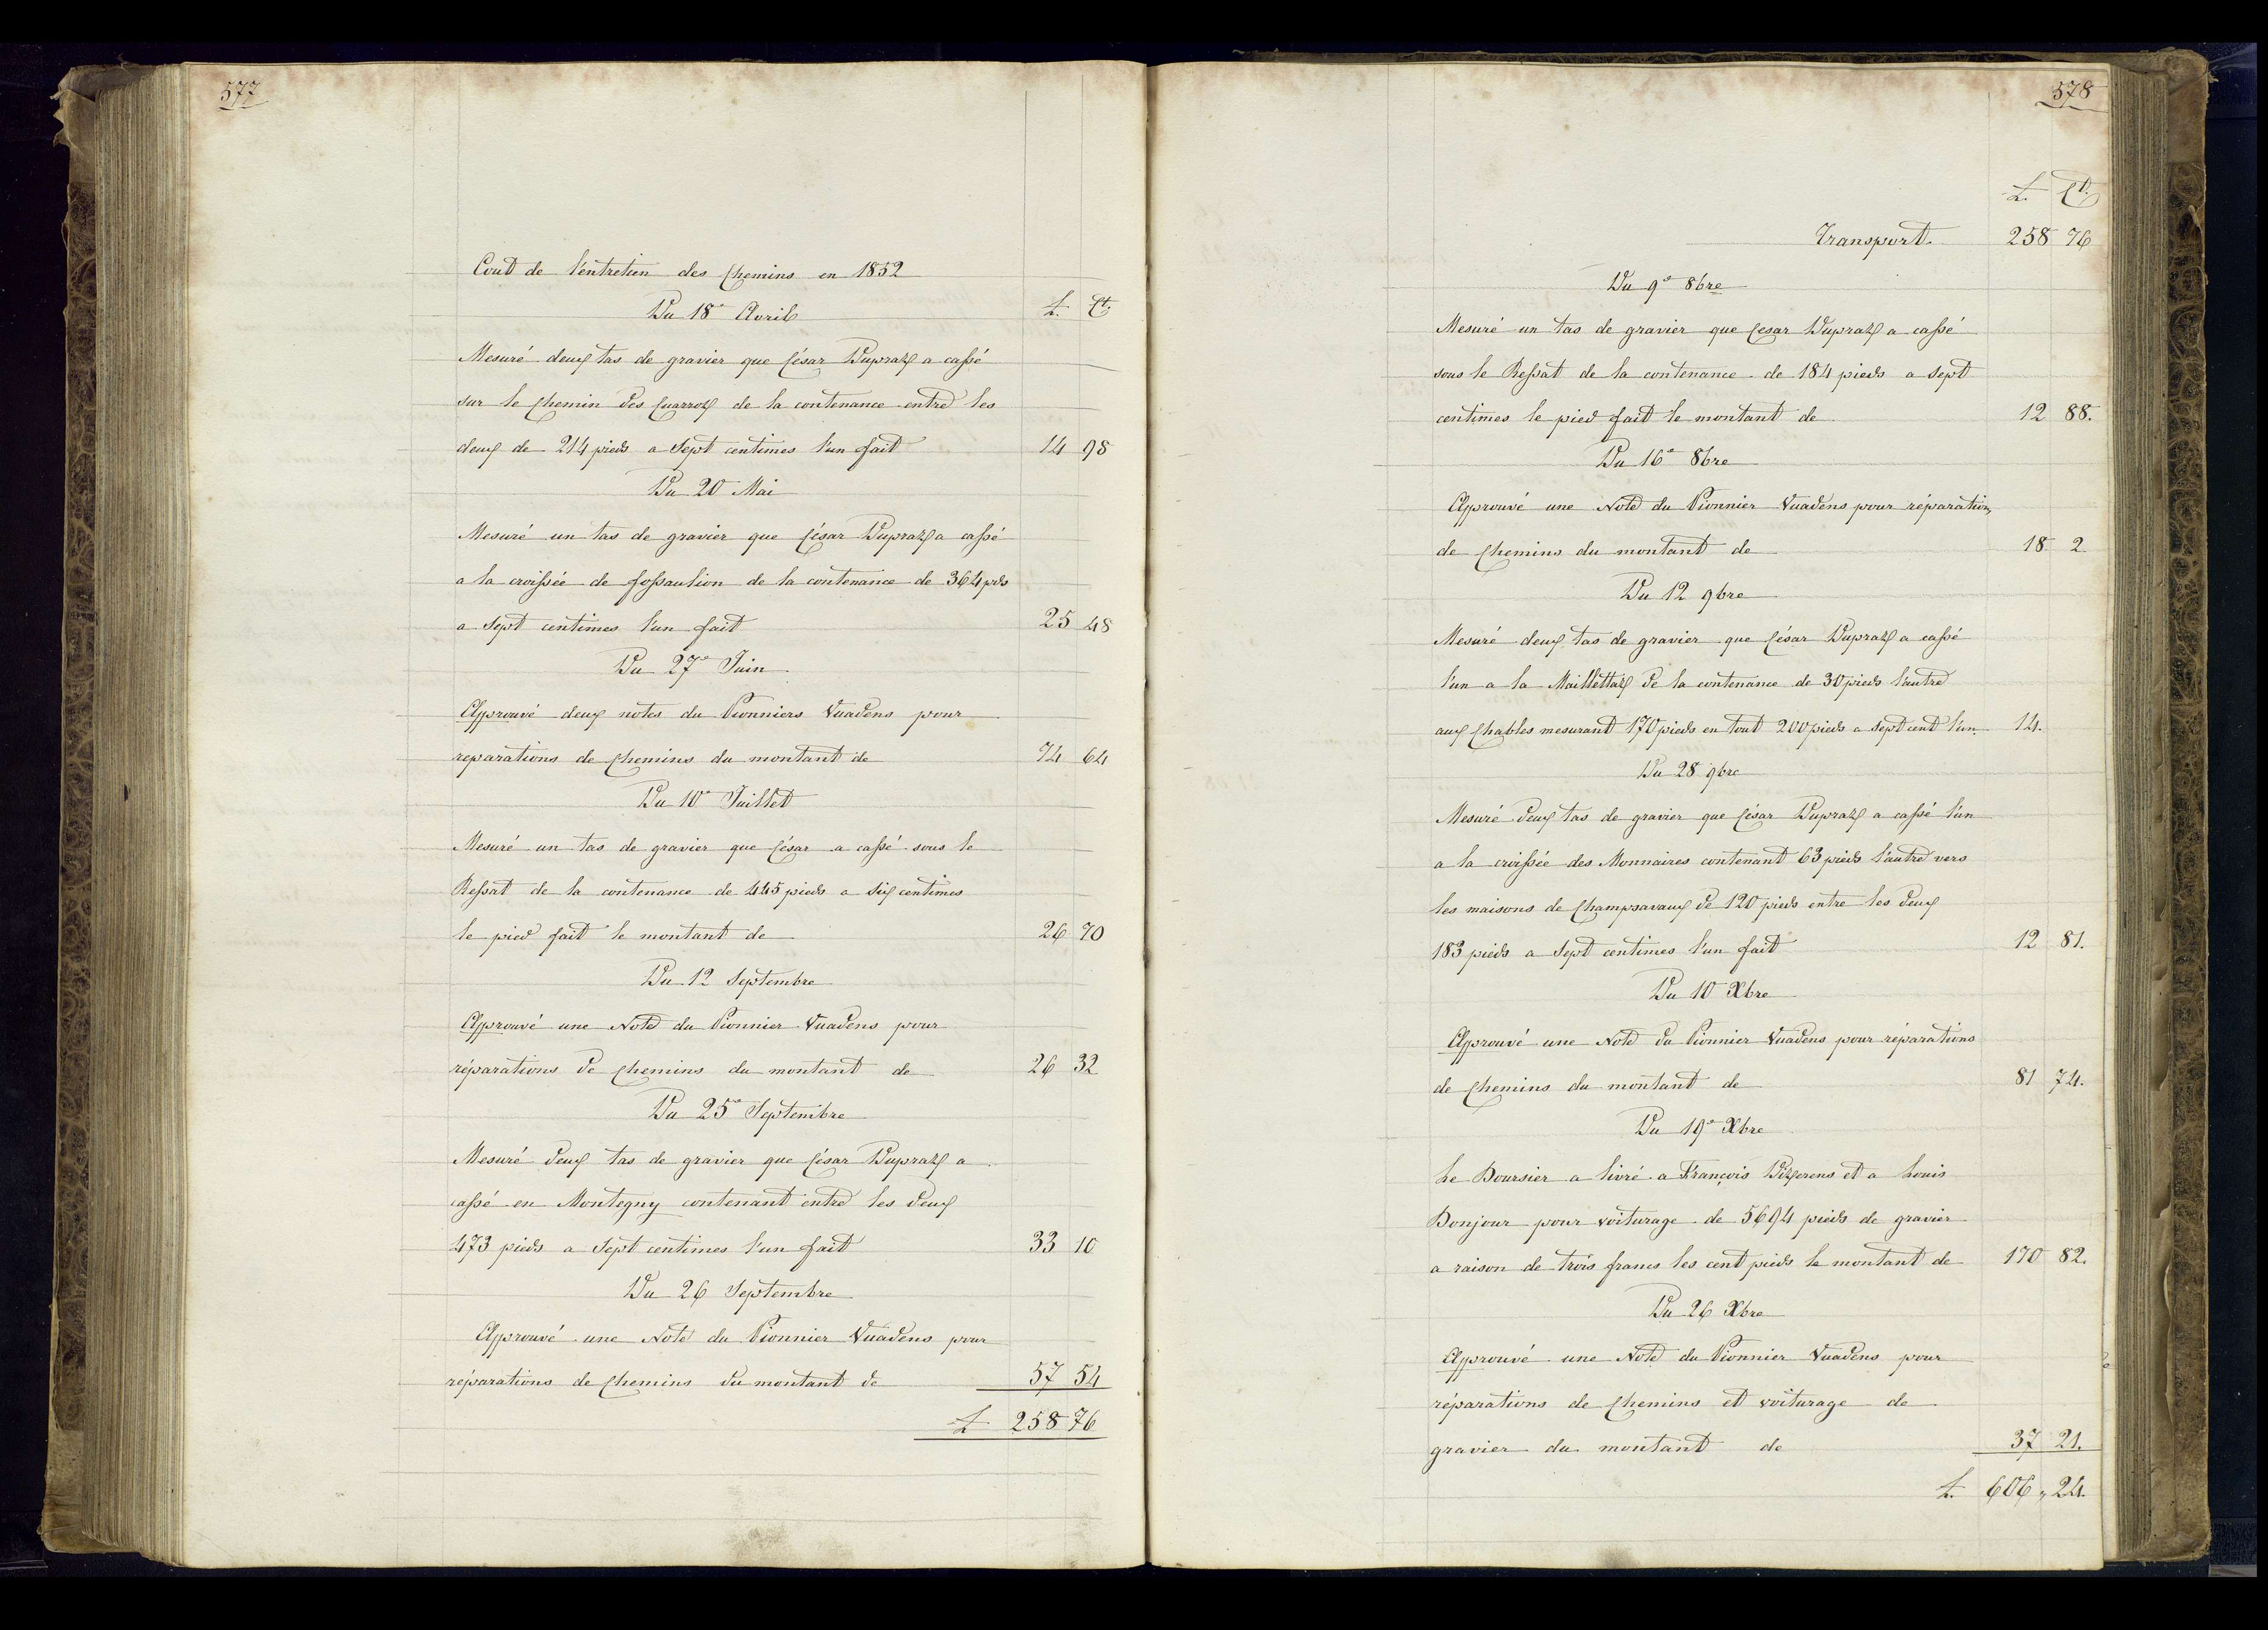 577
Cout de l'entretien des Chemins en 1852
Du 18e Avril £. Ct.
Mesuré deux tas de gravier que César Dupraz a cassé
sur le Chemin des Cuarroz de la contenance entre les
deux de 214 pieds a Sept centimes l'un fait 14 98
Du 20 Mai
Mesuré un tas de gravier que César Dupraz a cassé
a la croissée de fossaulion de la contenance de 364 pds
a Sept centimes l'un fait 25 48
Du 27e Juin
Approuvé deux notes du Pionniers Vuadens pour
reparations de Chemins du montant de 74 64
Du 10e Juillet
Mesuré un tas de gravier que César a cassé sous le
Ressat de la contenance de 445 pieds a Six centimes
le pied fait le montant de 26 70
Du 12 Septembre
Approuvé une Note du Pionnier Vuadens pour
réparations de Chemins du montant de 26 32
Du 25e Septembre
Mesuré deux tas de gravier que César Dupraz a
cassé en Montegny contenant entre les deux
473 pieds a Sept centimes l'un fait 33 10
Du 26 Septembre
Approuvé une Note du Pionnier Vuadens pour
réparations de Chemins du montant de 57 54
£ 258 76
578
£. Ct.
Transport. 258 76
Du 9e 8bre
Mesuré un tas de gravier que Cesar Dupraz a cassé
sous le Ressat de la contenance de 184 pieds a Sept
centimes le pied fait le montant de 12 88.
Du 16e 8bre
Approuvé une Note du Pionnier Vuadens pour réparation,
de Chemins du montant de 18 2
Du 12 9bre
Mesuré deux tas de gravier que César Dupraz a cassé
l'un a la Maillettaz de la contenance de 30 pieds l'autre
aux Chables mesurant 170 pieds en tout 200 pieds a Sept cent l'un. 14.
Du 28 9bre
Mesuré deux tas de gravier que César Dupraz a cassé l'un
a la croissée des Monnaires contenant 63 pieds l'autre vers
les maisons de Champsavaux de 120 pieds entre les deux
183 pieds a Sept centimes l'un fait 12 81.
Du 10 Xbre
Approuvé une Note du Pionnier Vuadens pour réparations
de Chemins du montant de 81 74.
Du 19e Xbre
Le Boursier a livré a François Dizerens et a Louis
Bonjour pour voiturage de 5694 pieds de gravier
a raison de trois francs les cent pieds le montant de 170 82.
Du 26 Xbre
Approuvé une Note du Pionnier Vuadens pour
réparations de Chemins et voiturage de
gravier du montant de 37 21.
£. 606 „ 24.